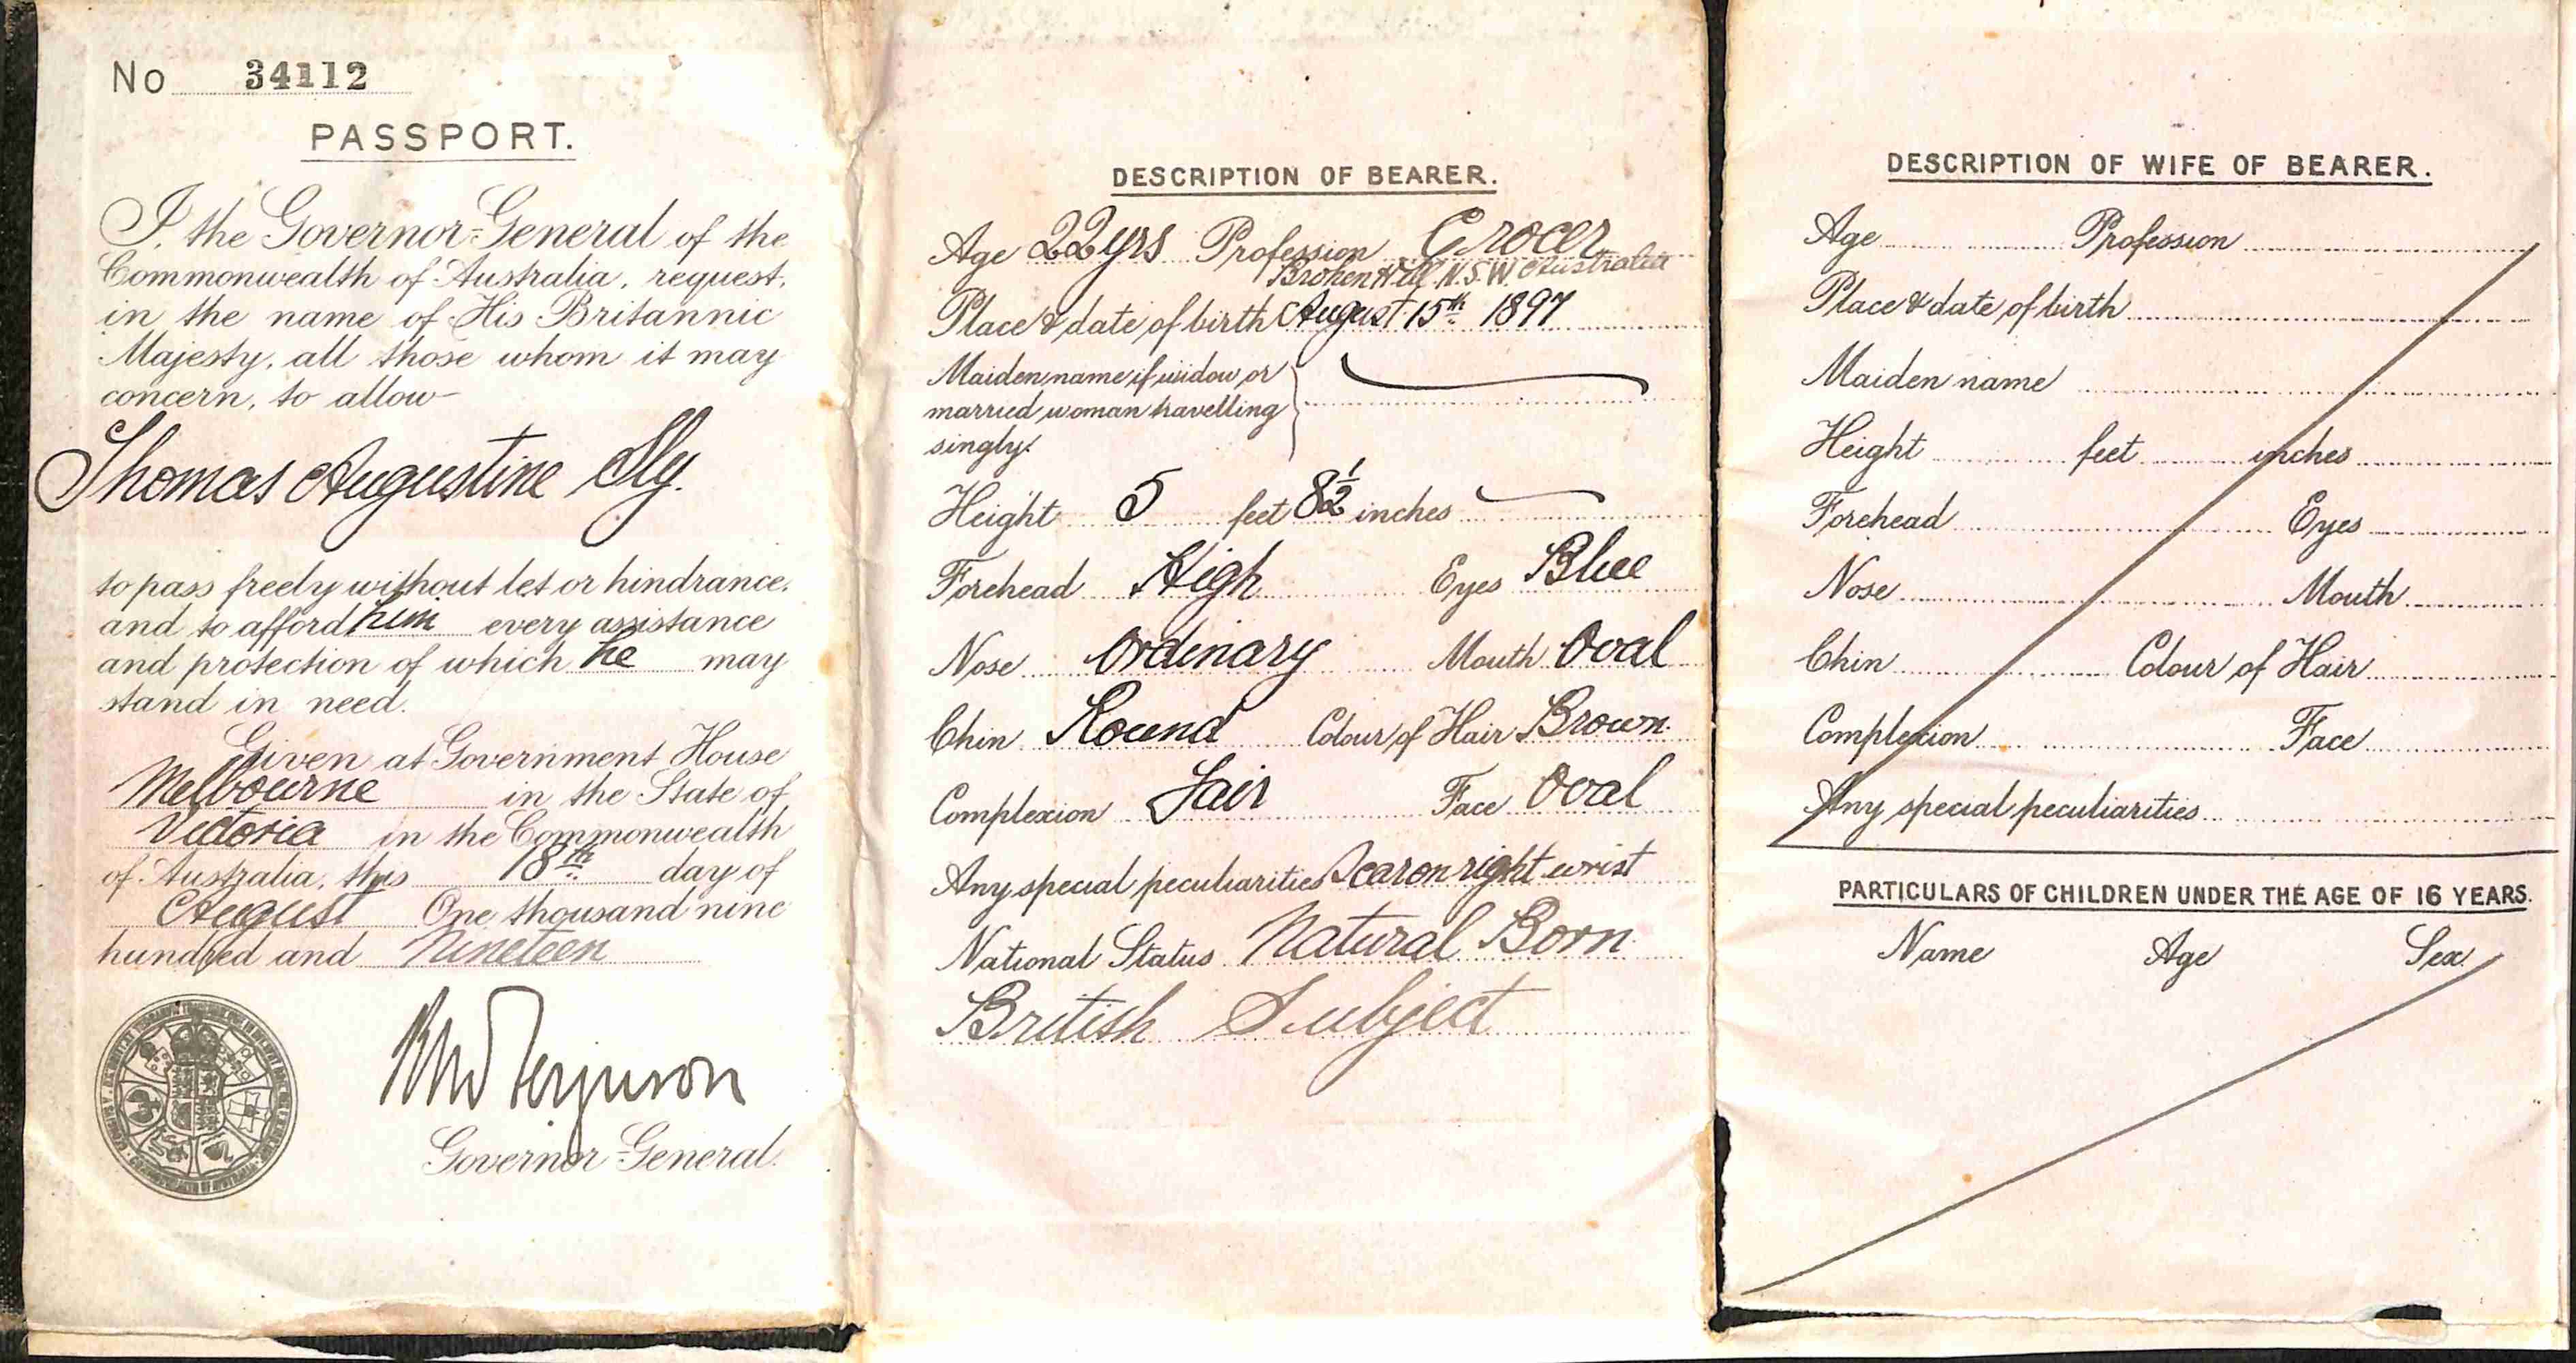 No 34112
PASSPORT.
I, the Governor-General of the
Commonwealth of Australia, request,
in the name of His Britannic
Majesty, all those whom it may
concern, to allow
Thomas Augustine Sly.
to pass freely without let or hindrance,
and to afford him every assistance
and protection of which he may
stand in need.
Given at Government House
Melbourne in the State of
Victoria in the Commonwealth
of Australia, this 18th day of
August One thousand nine
hundred and Nineteen
Ferguson
Governor-General.
DESCRIPTION OF BEARER.
Age 22yrs Profession Grocer
Broken Hill N.S.W. Australia
Place & date of birth August 15th 1897
Maiden name if widow or
married woman travelling
singly.
Height 5 feet 8½ inches
Forehead High Eyes Blue
Nose Ordinary Mouth Oval
Chin Round Colour of Hair Brown.
Complexion Fair Face Oval
Any special peculiarities Scar on right wrist
National Status Natural Born
British Subject
DESCRIPTION OF WIFE OF BEARER.
Age Profession
Place & date of birth
Maiden name
Height feet inches
Forehead Eyes
Nose Mouth
Chin Colour of Hair
Complexion Face
Any special peculiarities
PARTICULARS OF CHILDREN UNDER THE AGE OF 16 YEARS.
Name Age Sex